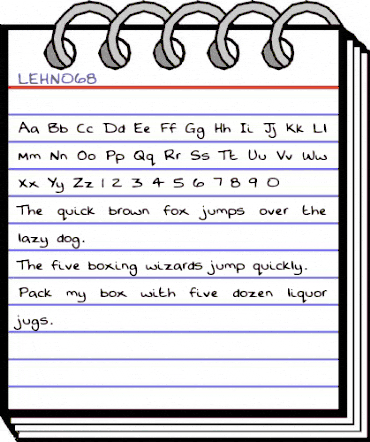 LEHN068
Aa Bb Cc Dd Ee Ff Gg Hh Ii Jj Kk Ll
Mm Nn Oo Pp Qq Rr Ss Tt Uu Vv Ww
Xx Yy Zz 1 2 3 4 5 6 7 8 9 0
The quick brown fox jumps over the
lazy dog.
The five boxing wizards jump quickly.
Pack my box with five dozen liquor
jugs.